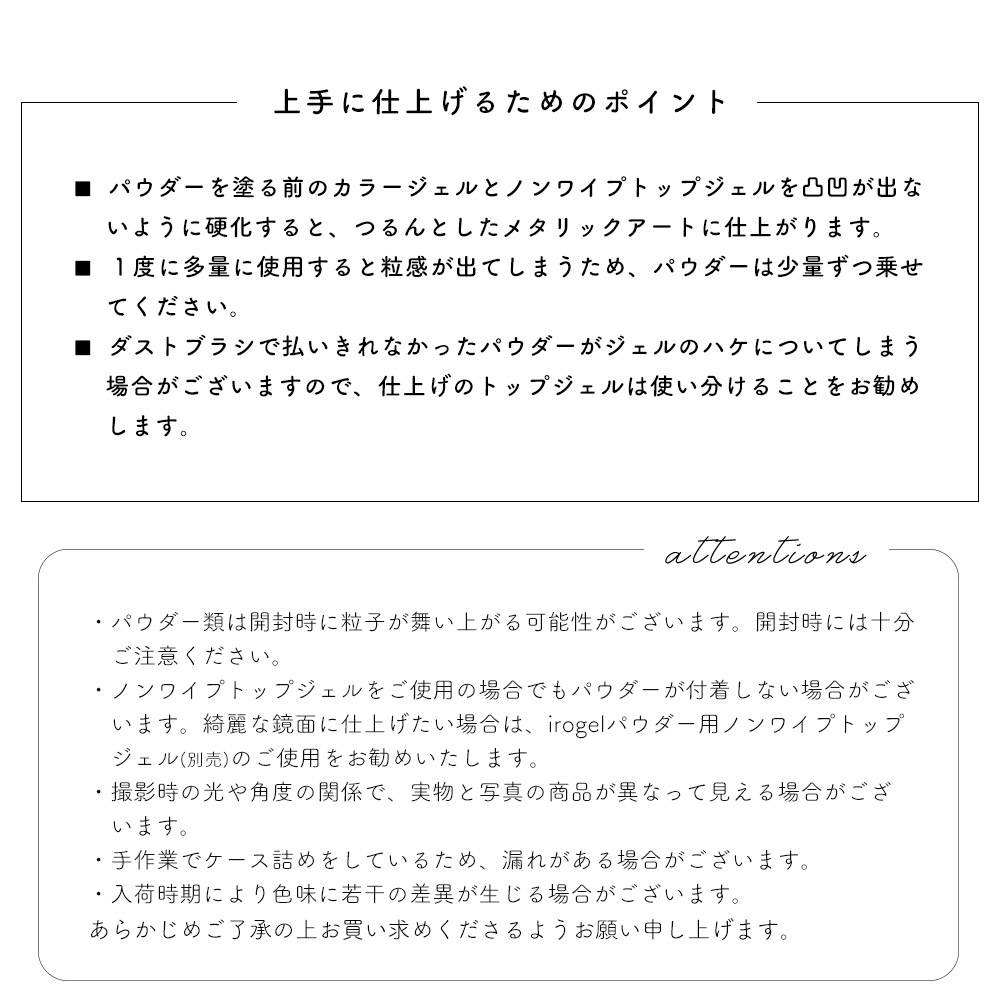 上手に仕上げるためのポイント
■ パウダーを塗る前のカラージェルとノンワイプトップジェルを凸凹が出な
いように硬化すると、つるんとしたメタリックアートに仕上がります。
■ １度に多量に使用すると粒感が出てしまうため、パウダーは少量ずつ乗せ
てください。
■ ダストブラシで払いきれなかったパウダーがジェルのハケについてしまう
場合がございますので、仕上げのトップジェルは使い分けることをお勧め
します。
attentions
・パウダー類は開封時に粒子が舞い上がる可能性がございます。開封時には十分
ご注意ください。
・ノンワイプトップジェルをご使用の場合でもパウダーが付着しない場合がござ
います。綺麗な鏡面に仕上げたい場合は、irogelパウダー用ノンワイプトップ
ジェル(別売)のご使用をお勧めいたします。
・撮影時の光や角度の関係で、実物と写真の商品が異なって見える場合がござ
います。
・手作業でケース詰めをしているため、漏れがある場合がございます。
・入荷時期により色味に若干の差異が生じる場合がございます。
あらかじめご了承の上お買い求めくださるようお願い申し上げます。